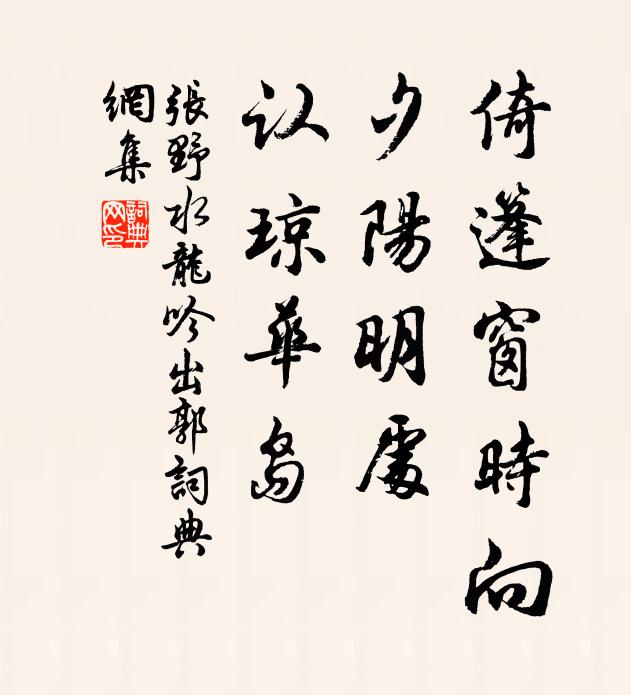 倚蓬窗時向
夕陽明處
认琼華岛
張野水龍吟出郭詞典
網集
詞典
网印